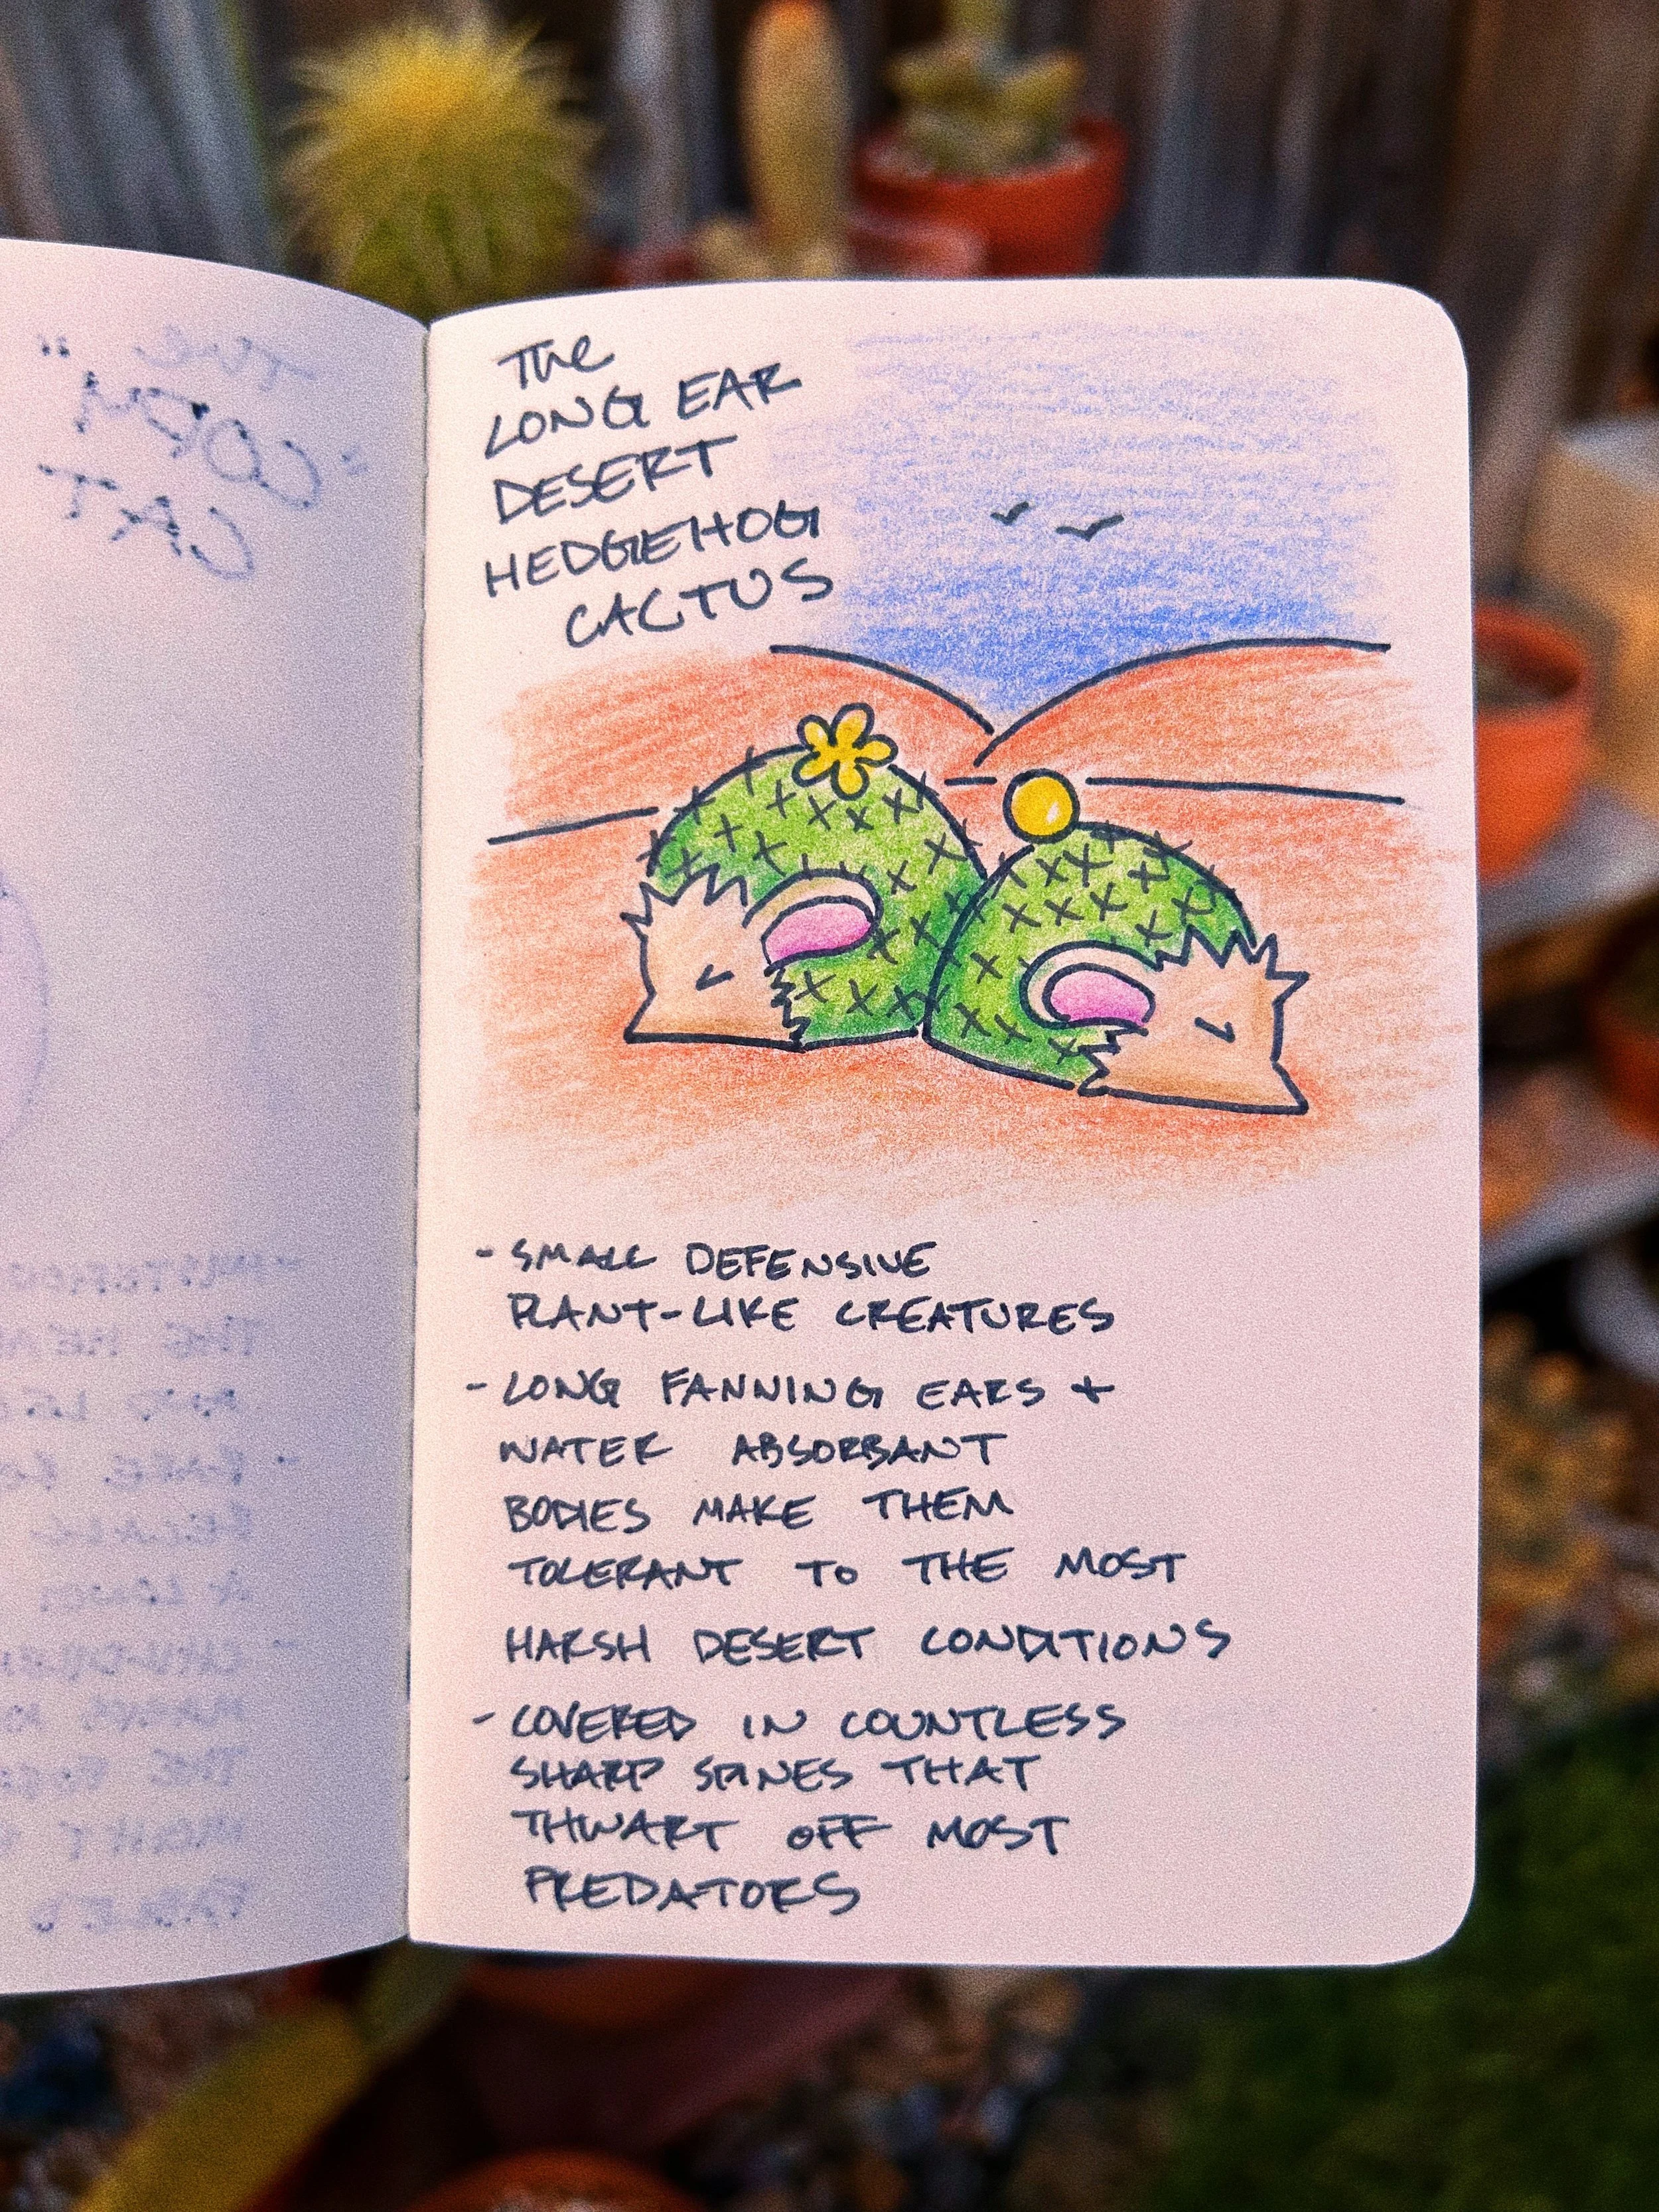 The
LONG EAR
DESERT
HEDGEHOG
CACTUS
- SMALL DEFENSIVE
PLANT-LIKE CREATURES
- LONG FANNING EARS +
WATER ABSORBANT
BODIES MAKE THEM
TOLERANT TO THE MOST
HARSH DESERT CONDITIONS
- COVERED IN COUNTLESS
SHARP SPINES THAT
THWART OFF MOST
PREDATORS
The
"COPY
CAT